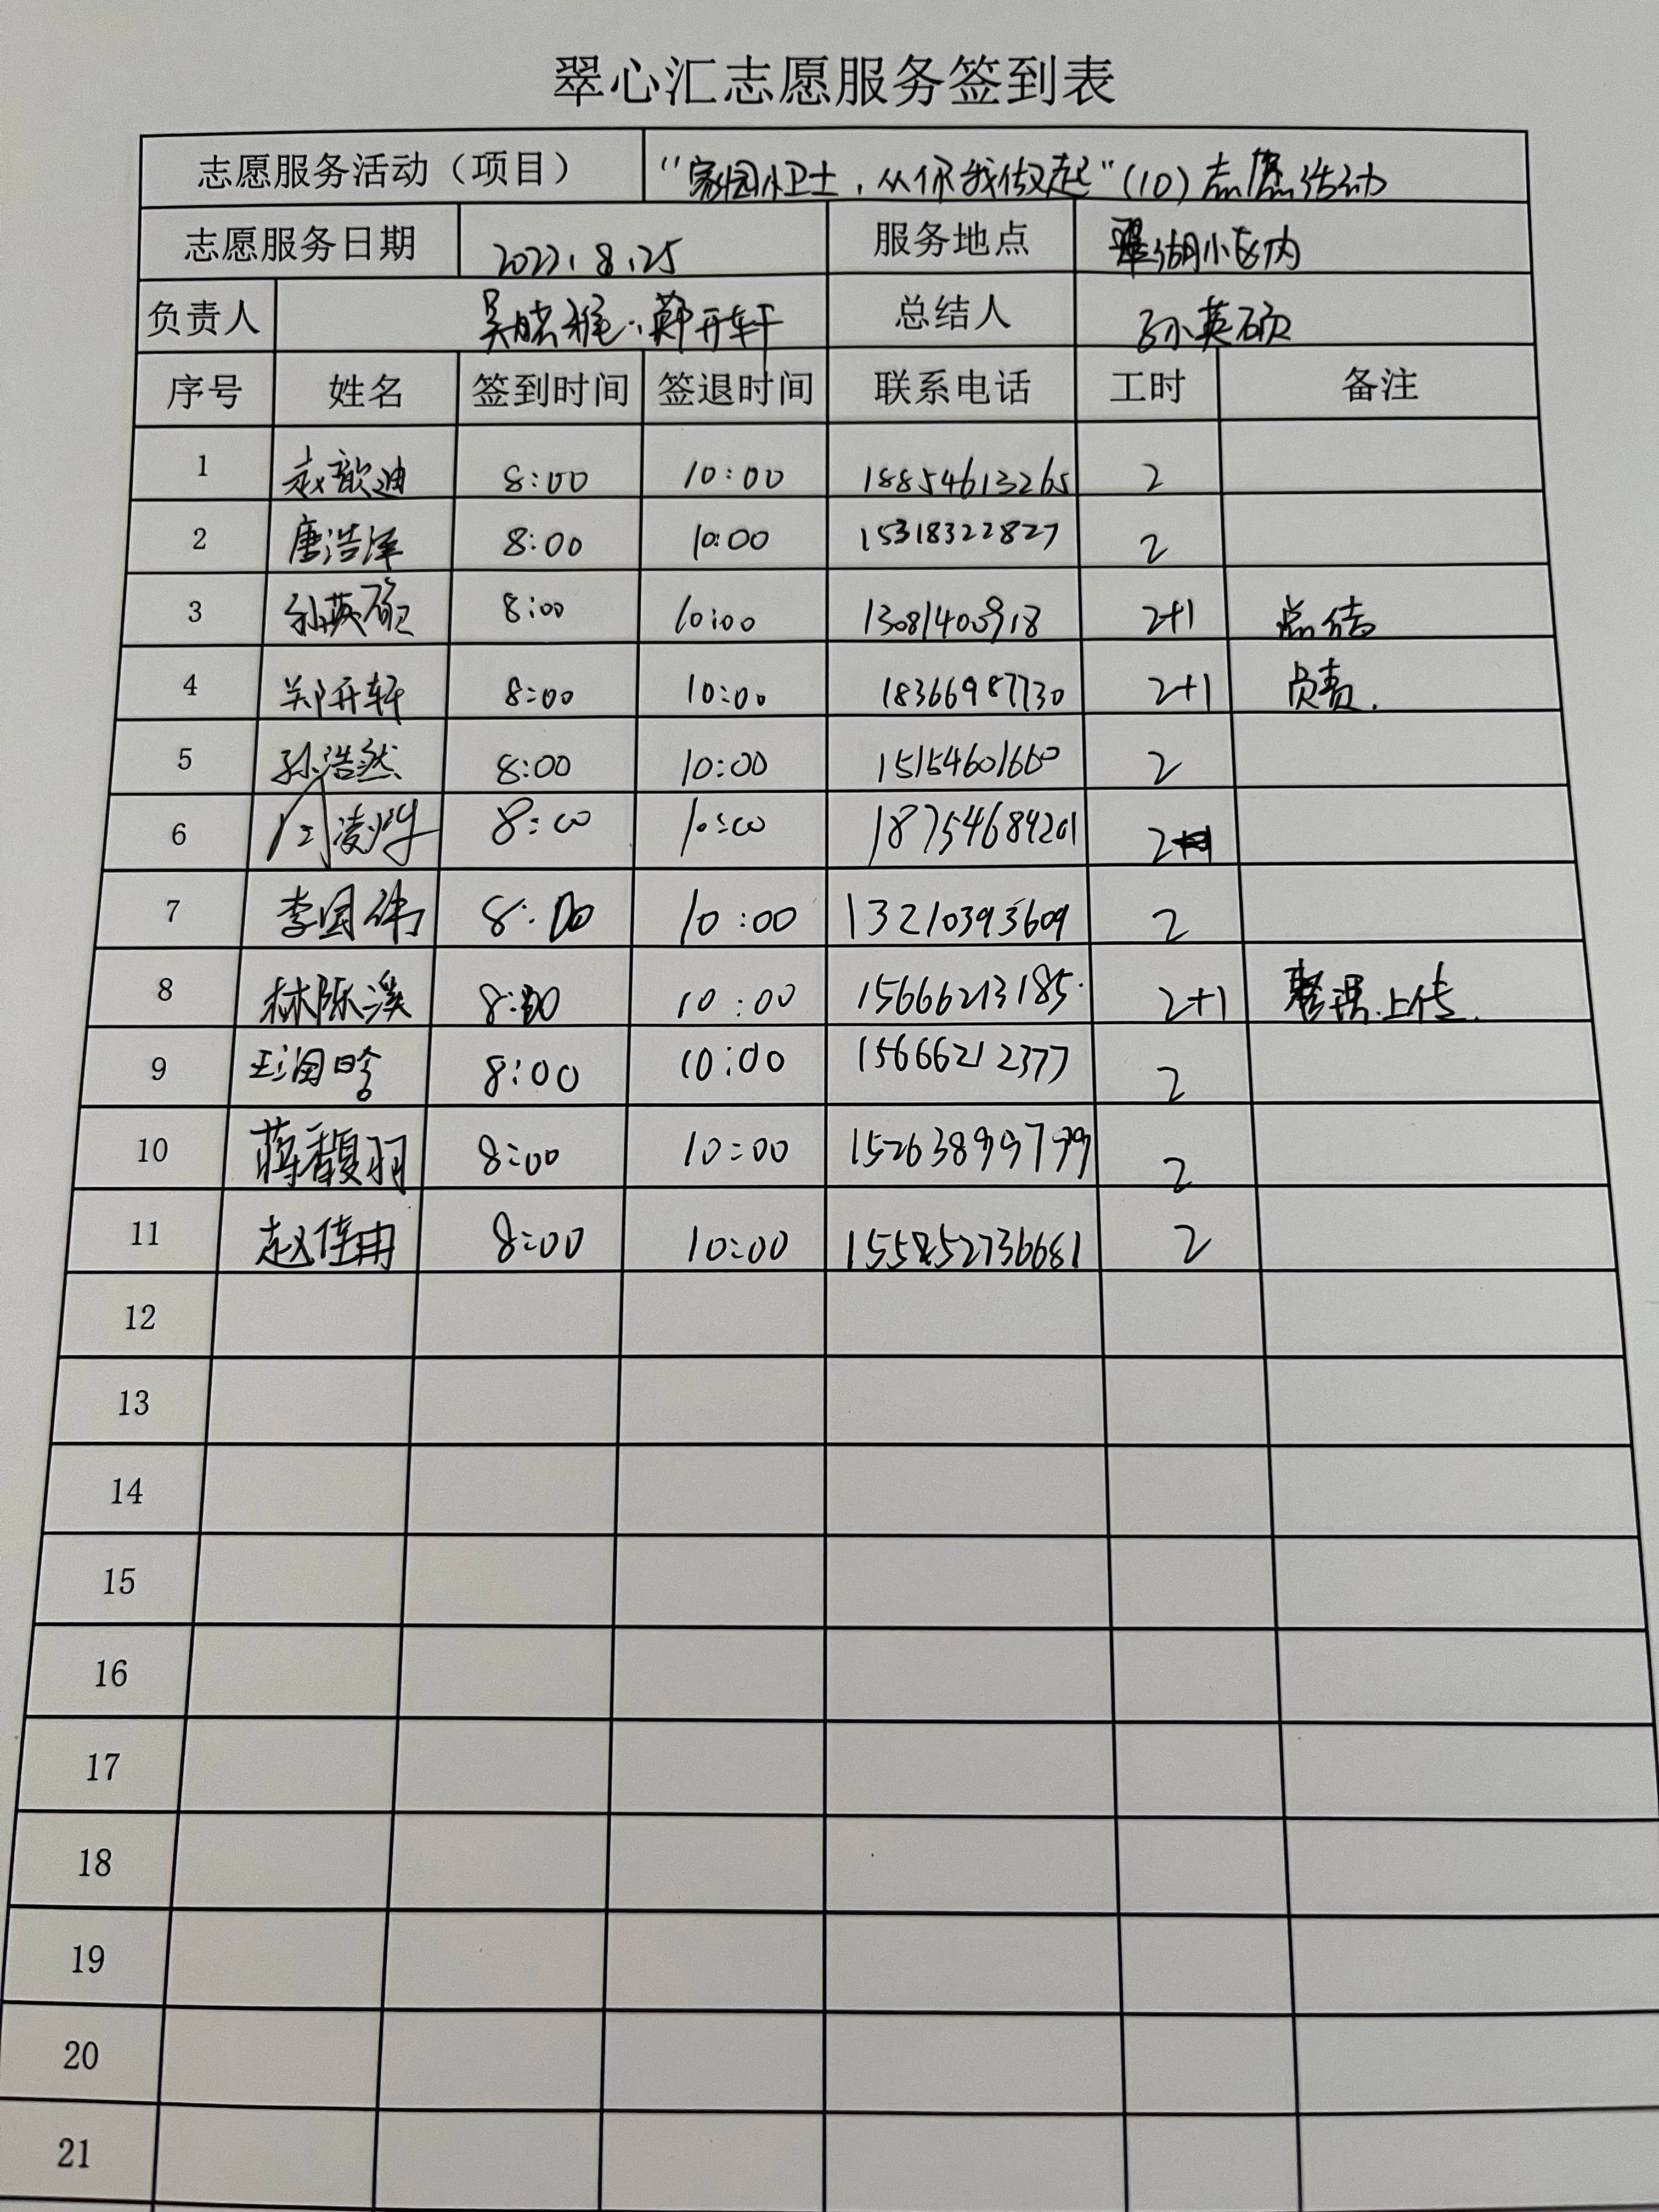 翠心汇志愿服务签到表
志愿服务活动（项目） "家园小卫士，从你我做起"(10)志愿活动
志愿服务日期 2022.8.25 服务地点 翠湖小区内
负责人 吴晓雅、郑开轩 总结人 孙英硕
序号 姓名 签到时间 签退时间 联系电话 工时 备注
1 赵歆迪 8:00 10:00 18854613265 2
2 唐浩泽 8:00 10:00 15318322827 2
3 孙英硕 8:00 10:00 13081400918 2+1 总结
4 郑开轩 8:00 10:00 18366987730 2+1 负责.
5 孙浩然 8:00 10:00 15154601660 2
6 8:00 10:00 18754684201 2
7 李国伟 8:00 10:00 13210393609 2
8 林陈溪 8:00 10:00 15666213185 2+1 整理.上传.
9 8:00 10:00 15666212377 2
10 蒋馥羽 8:00 10:00 2
11 赵佳冉 8:00 10:00 2
12
13
14
15
16
17
18
19
20
21